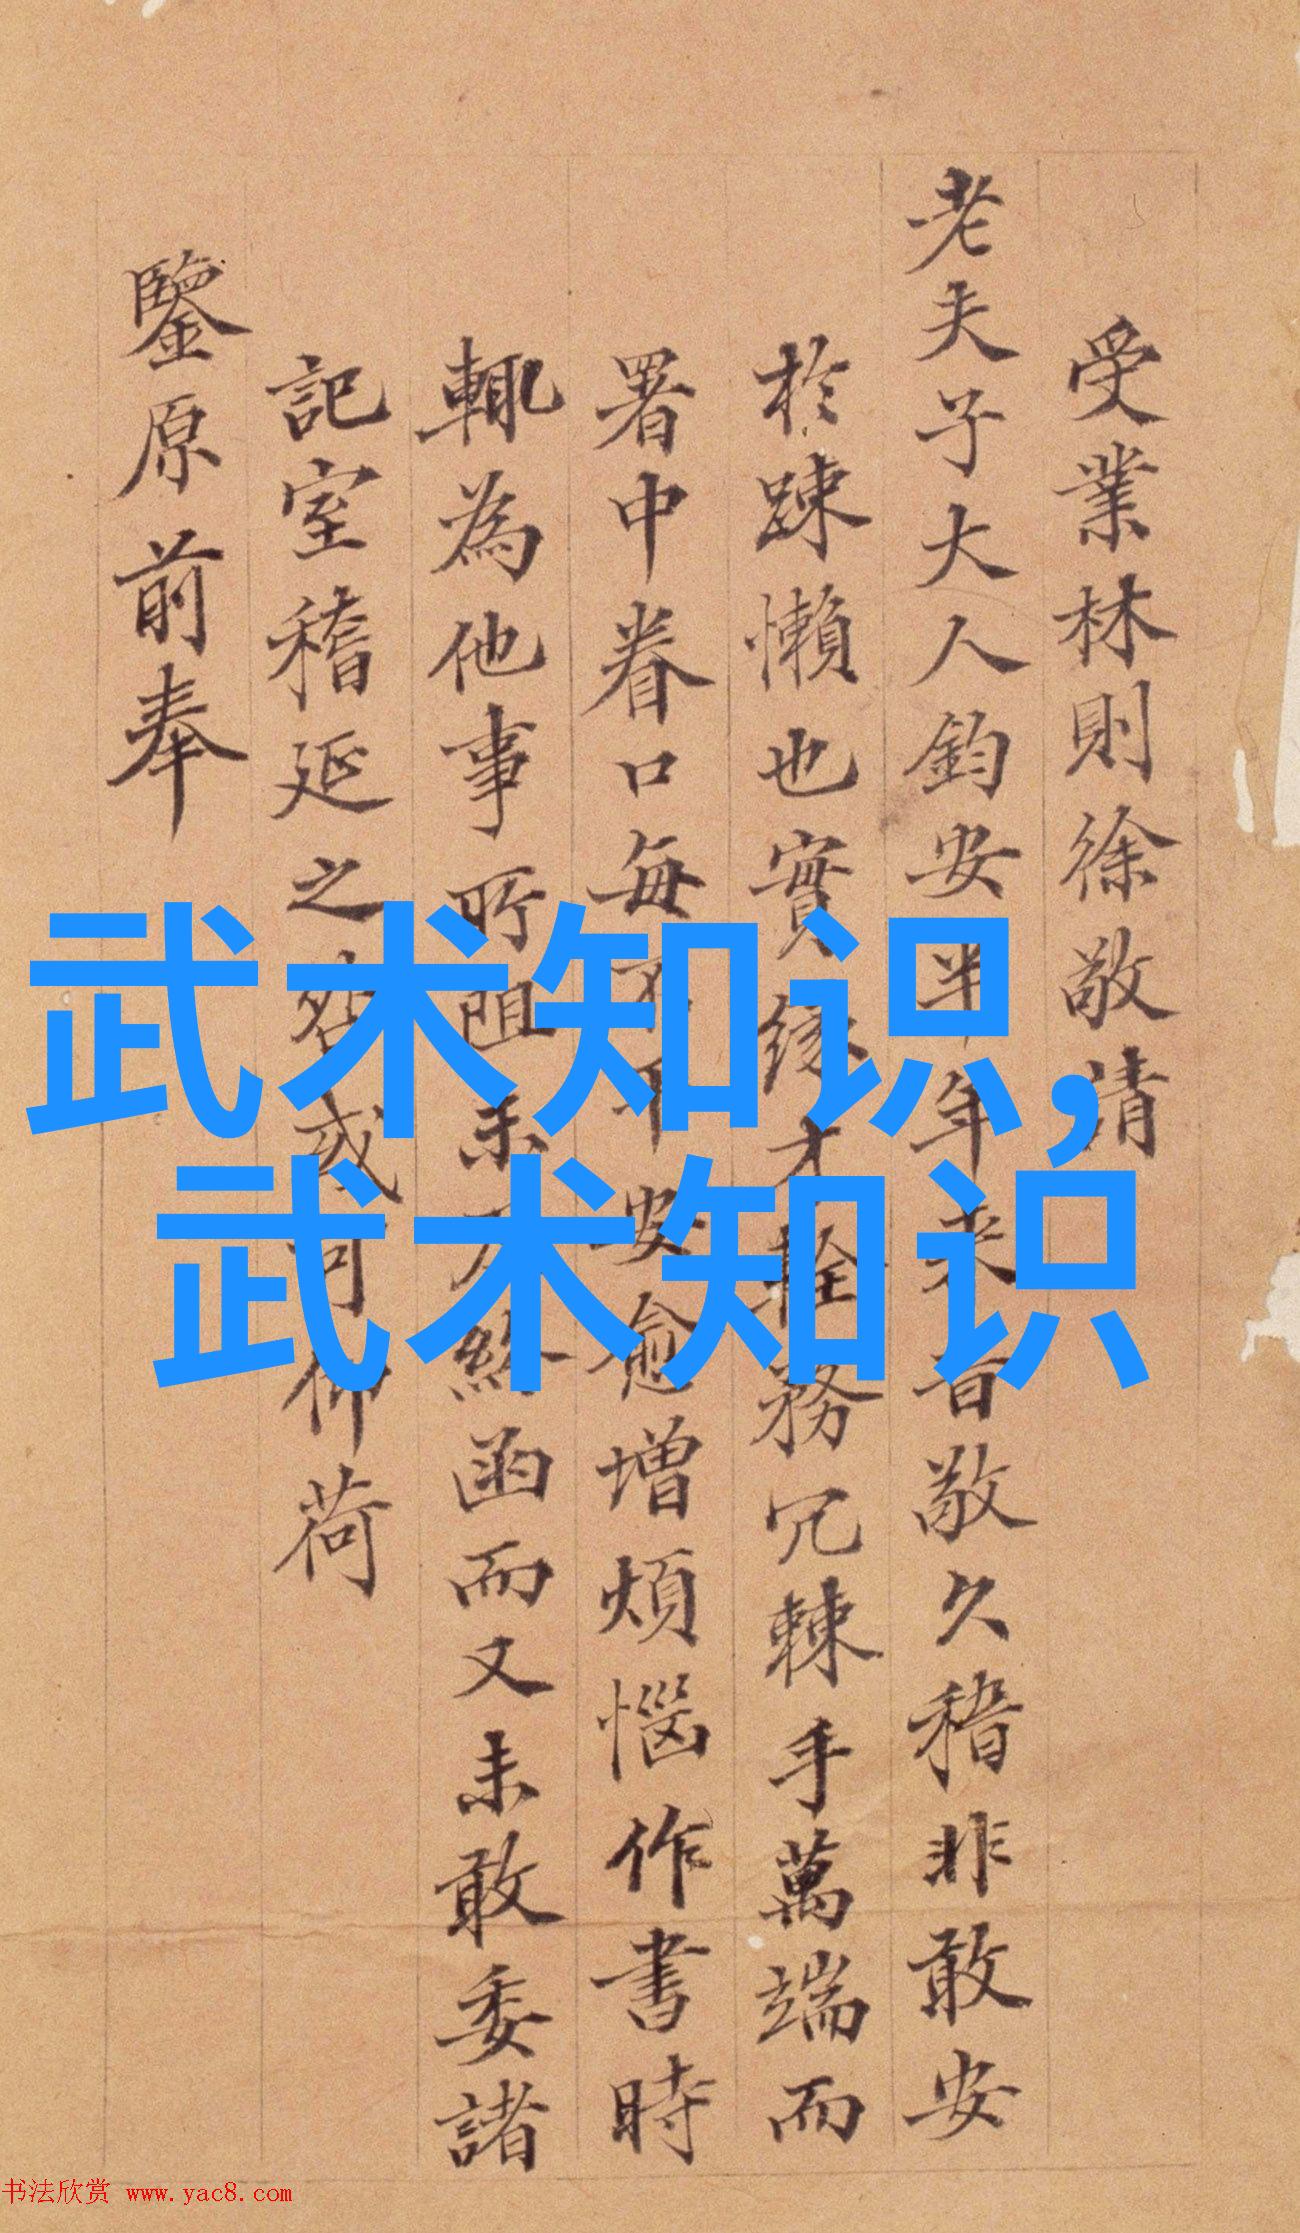 受業林則徐敬請
老夫子大人鈞安半年來音敬久稽非敢安
於踈懶也實緣才輇務冗棘手萬端而
署中眷口每有不安愈增煩惱作書時
輒為他事所阻未及終函而又未敢委諸
記室稽延之咎或可仰荷
鑒原前奉
武术知识,
武术知识
书法欣赏 www.yac8.com